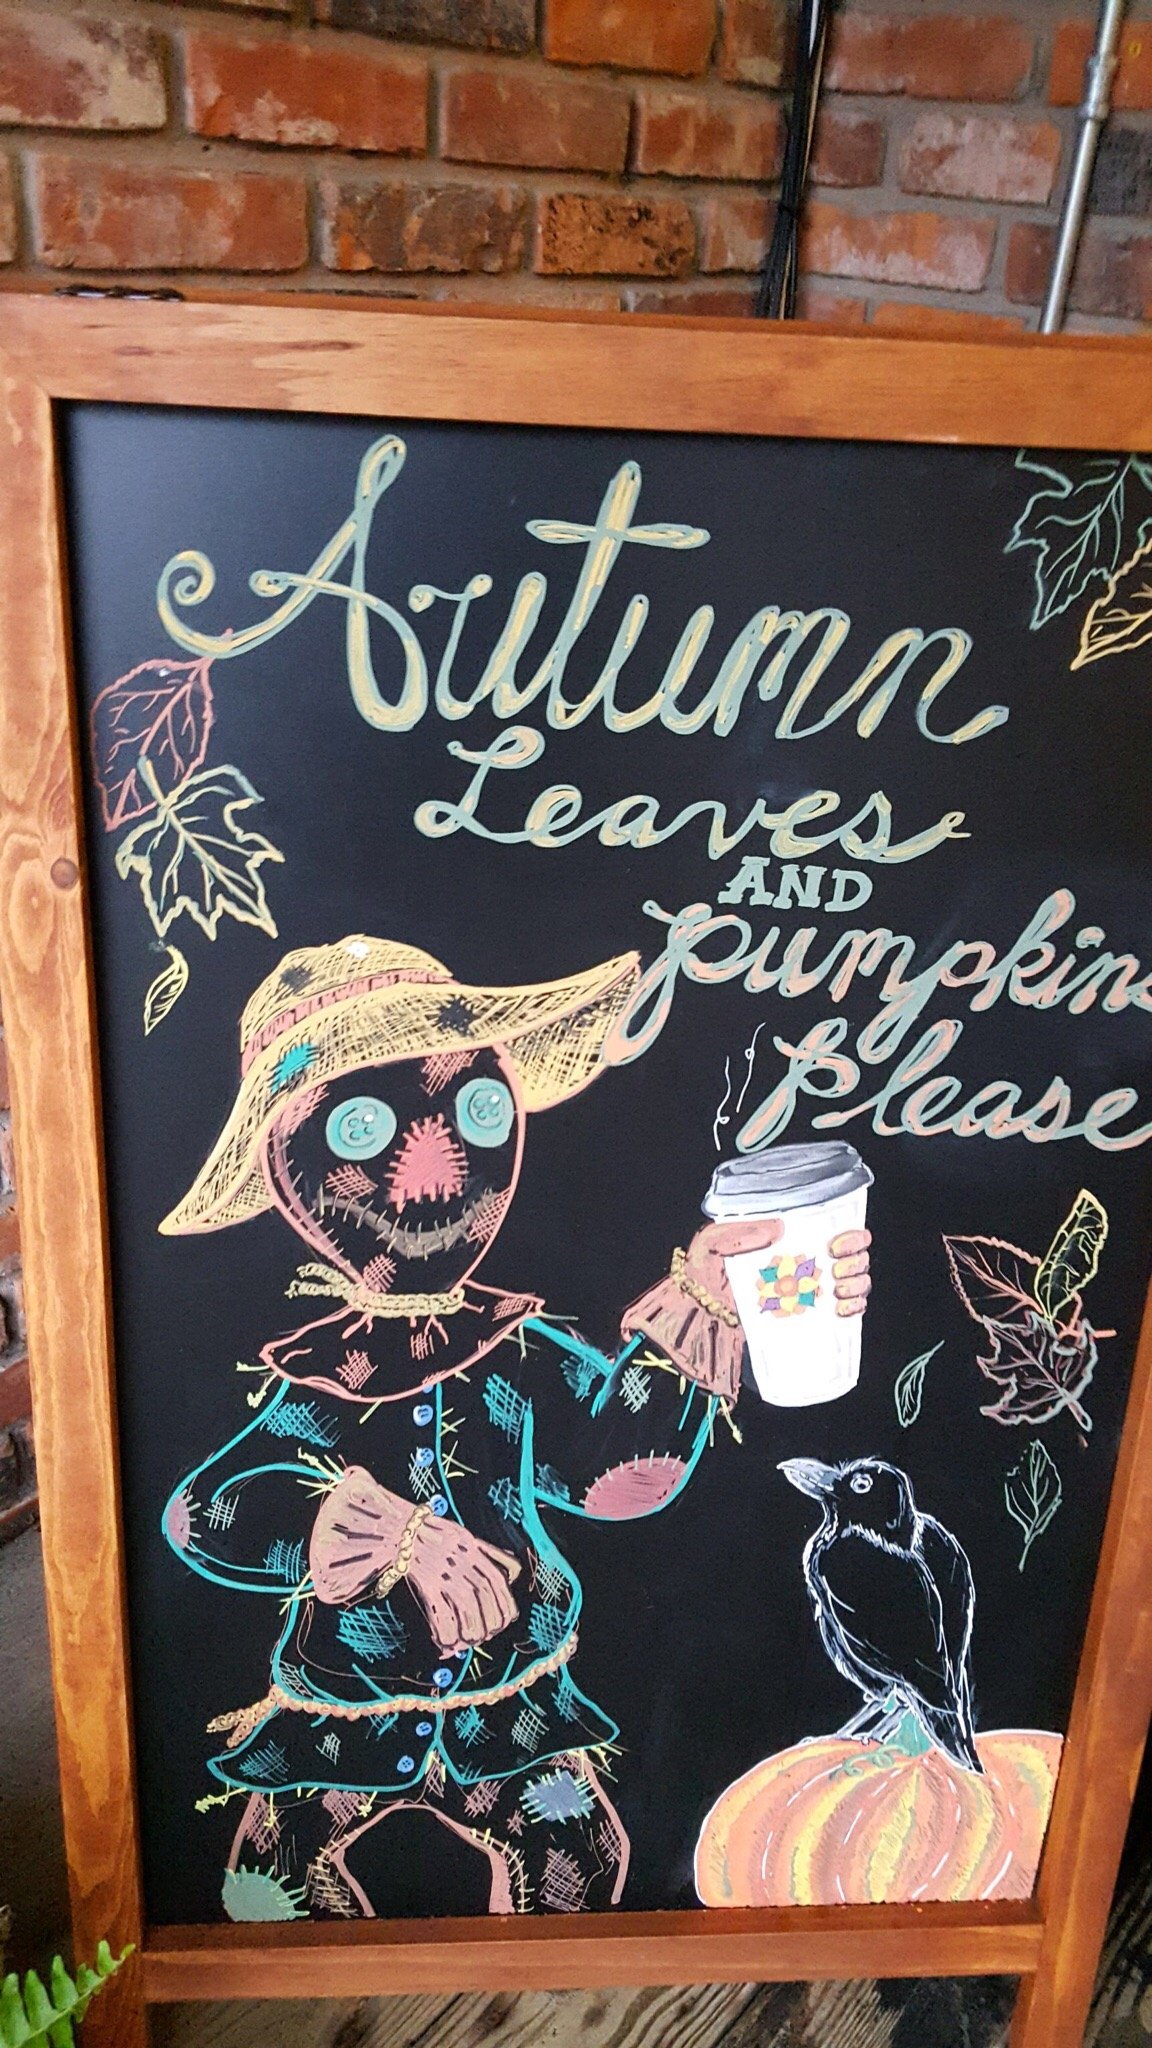 Autumn
Leaves
AND
pumpkins
please